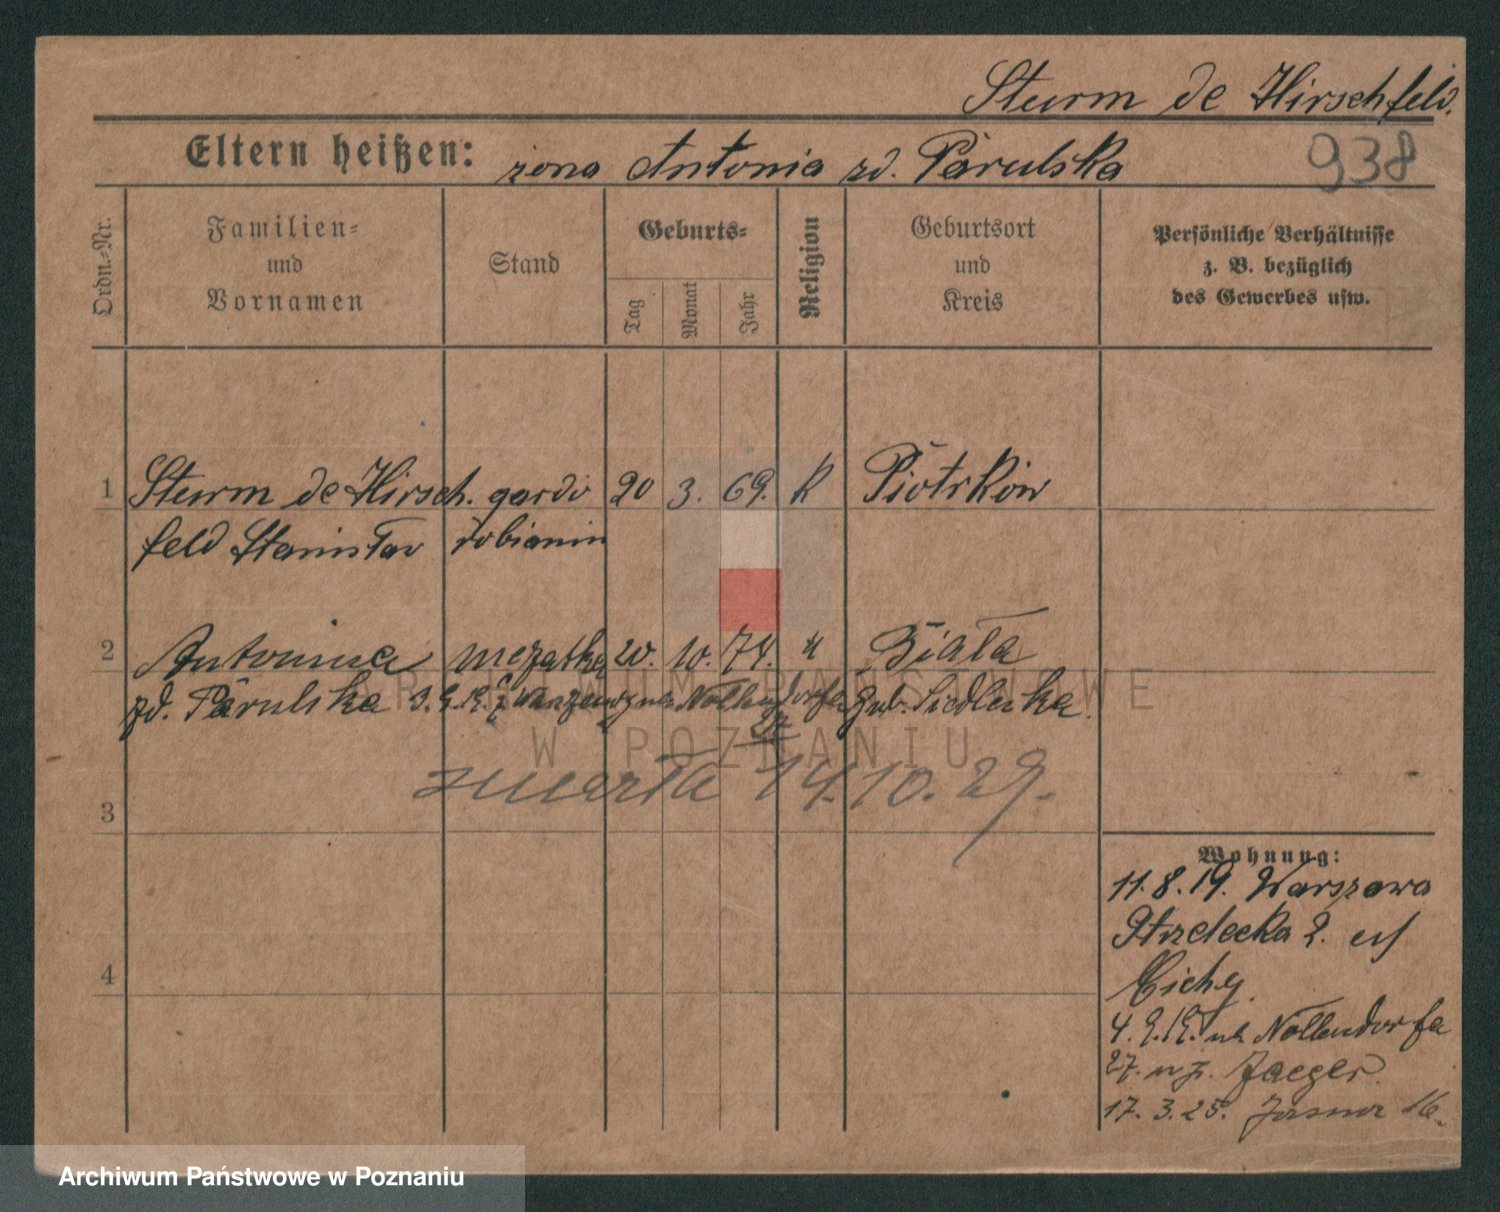 Sturm de Hirschfeld.
Eltern heißen: żona Antonia zd. Parulska
938
Ordn.-Nr.
Familien-
und
Vornamen
Stand
Geburts-
Tag
Monat
Jahr
Religion
Geburtsort
und
Kreis
Persönliche Verhältnisse
z. B. bezüglich
des Gewerbes usw.
1 Sturm de Hirsch. gardo 20 3. 69. k Piotrków
feld Stanisław robianin
2 Antonina mężatka 20. 10. 74. " Biała
zd. Parulska 3.9.19. z Nollendorfa Gub. Siedlecka.
27
zmarła 14.10.29.
3
4
Wohnung:
11.8.19. Warszawa
Strzelecka 2.
Cichy.
4.9.19. ul. Nollendorfa
27. Jaeger.
17.3.25. Jasna 16.
ARCHIWUM PAŃSTWOWE
W POZNANIU
Archiwum Państwowe w Poznaniu